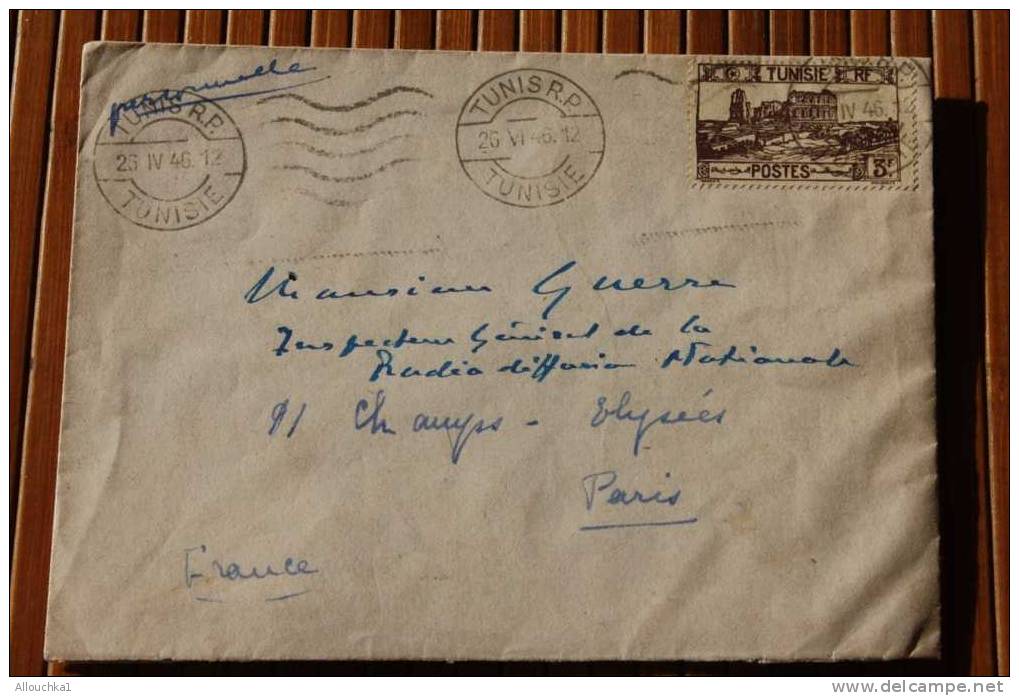 personnelle
TUNIS R.P.
26 IV 46. 12
TUNISIE
TUNIS R.P.
26 VI 46. 12
TUNISIE
TUNISIE RF
IV 46. 12
POSTES 3F
Monsieur Guerre
Inspecteur Général de la
Radiodiffusion Nationale
91 Champs-Elysées
Paris
France
Allouchka1
www.delcampe.net